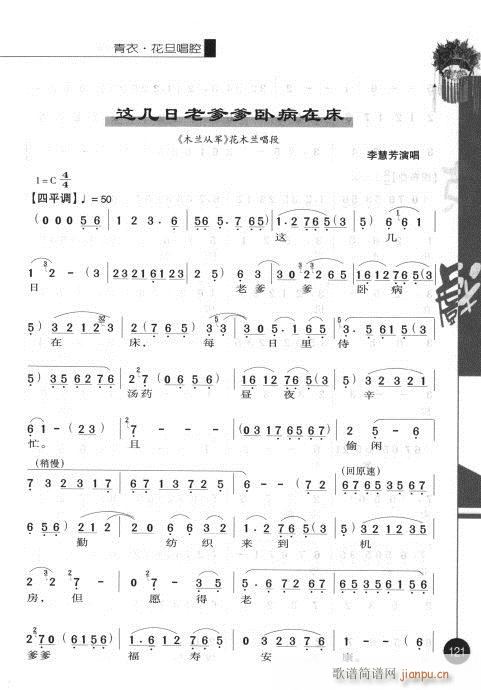 青衣·花旦唱腔
这几日老爹爹卧病在床
《木兰从军》花木兰唱段
李慧芳演唱
1=C 4/4
【四平调】♩=50
(0 0 0 5 6 1 2 3 . 6 5 6 5 . 7 6 5 1 . 2 7 6 5 (3 5) 6 6 1
这 几
1 2 - (3 2 3 2 1 6 1 2 3 2) 5 6 3 3 0 2 3 2 5 1 6 1 2 7 6 5 (3
日 老 爹 爹 卧 病
5) 3 2 1 2 3 2 (7 6 5) 3 3 2 . 3 4 3 5) 6 1 1 . 2 7 6 5 (3
在 床， 每 日 里 侍
5) 3 5 6 2 7 6 2 7 (0 6 5 6 1 6 1 2 0 7 6 5 6 7 2 - 7 6 5
汤药 昼 夜 辛
6 1 - (2 3 7 - - - (0 3 1 7 6 5 6 7) 2 5 - 6
忙。 且 偷闲
(稍慢) (回原速)
7 3 2 3 1 7 6 . 7 2 3 7 6 5 6 7 6 5 3 5 6 7
6 5 0 3 5 2 1 2 2 0 6 6 3 2 1 . 2 7 6 5 (3 5) 3 2 1 2 3 5
勤 纺 织 来 到 机
2 2 7 7 - 0 7 3 5 2 . 6 7 2 7 6 0 5 6 5 6 1 2
房， 但 愿 得 老
2 7 0 (6 1 5 6) 1 . 6 1 2 3 2 3 7 6 5 0 3 5 6 1 -
爹爹 福 寿 安 康。
121
歌谱简谱网
jianpu.cn